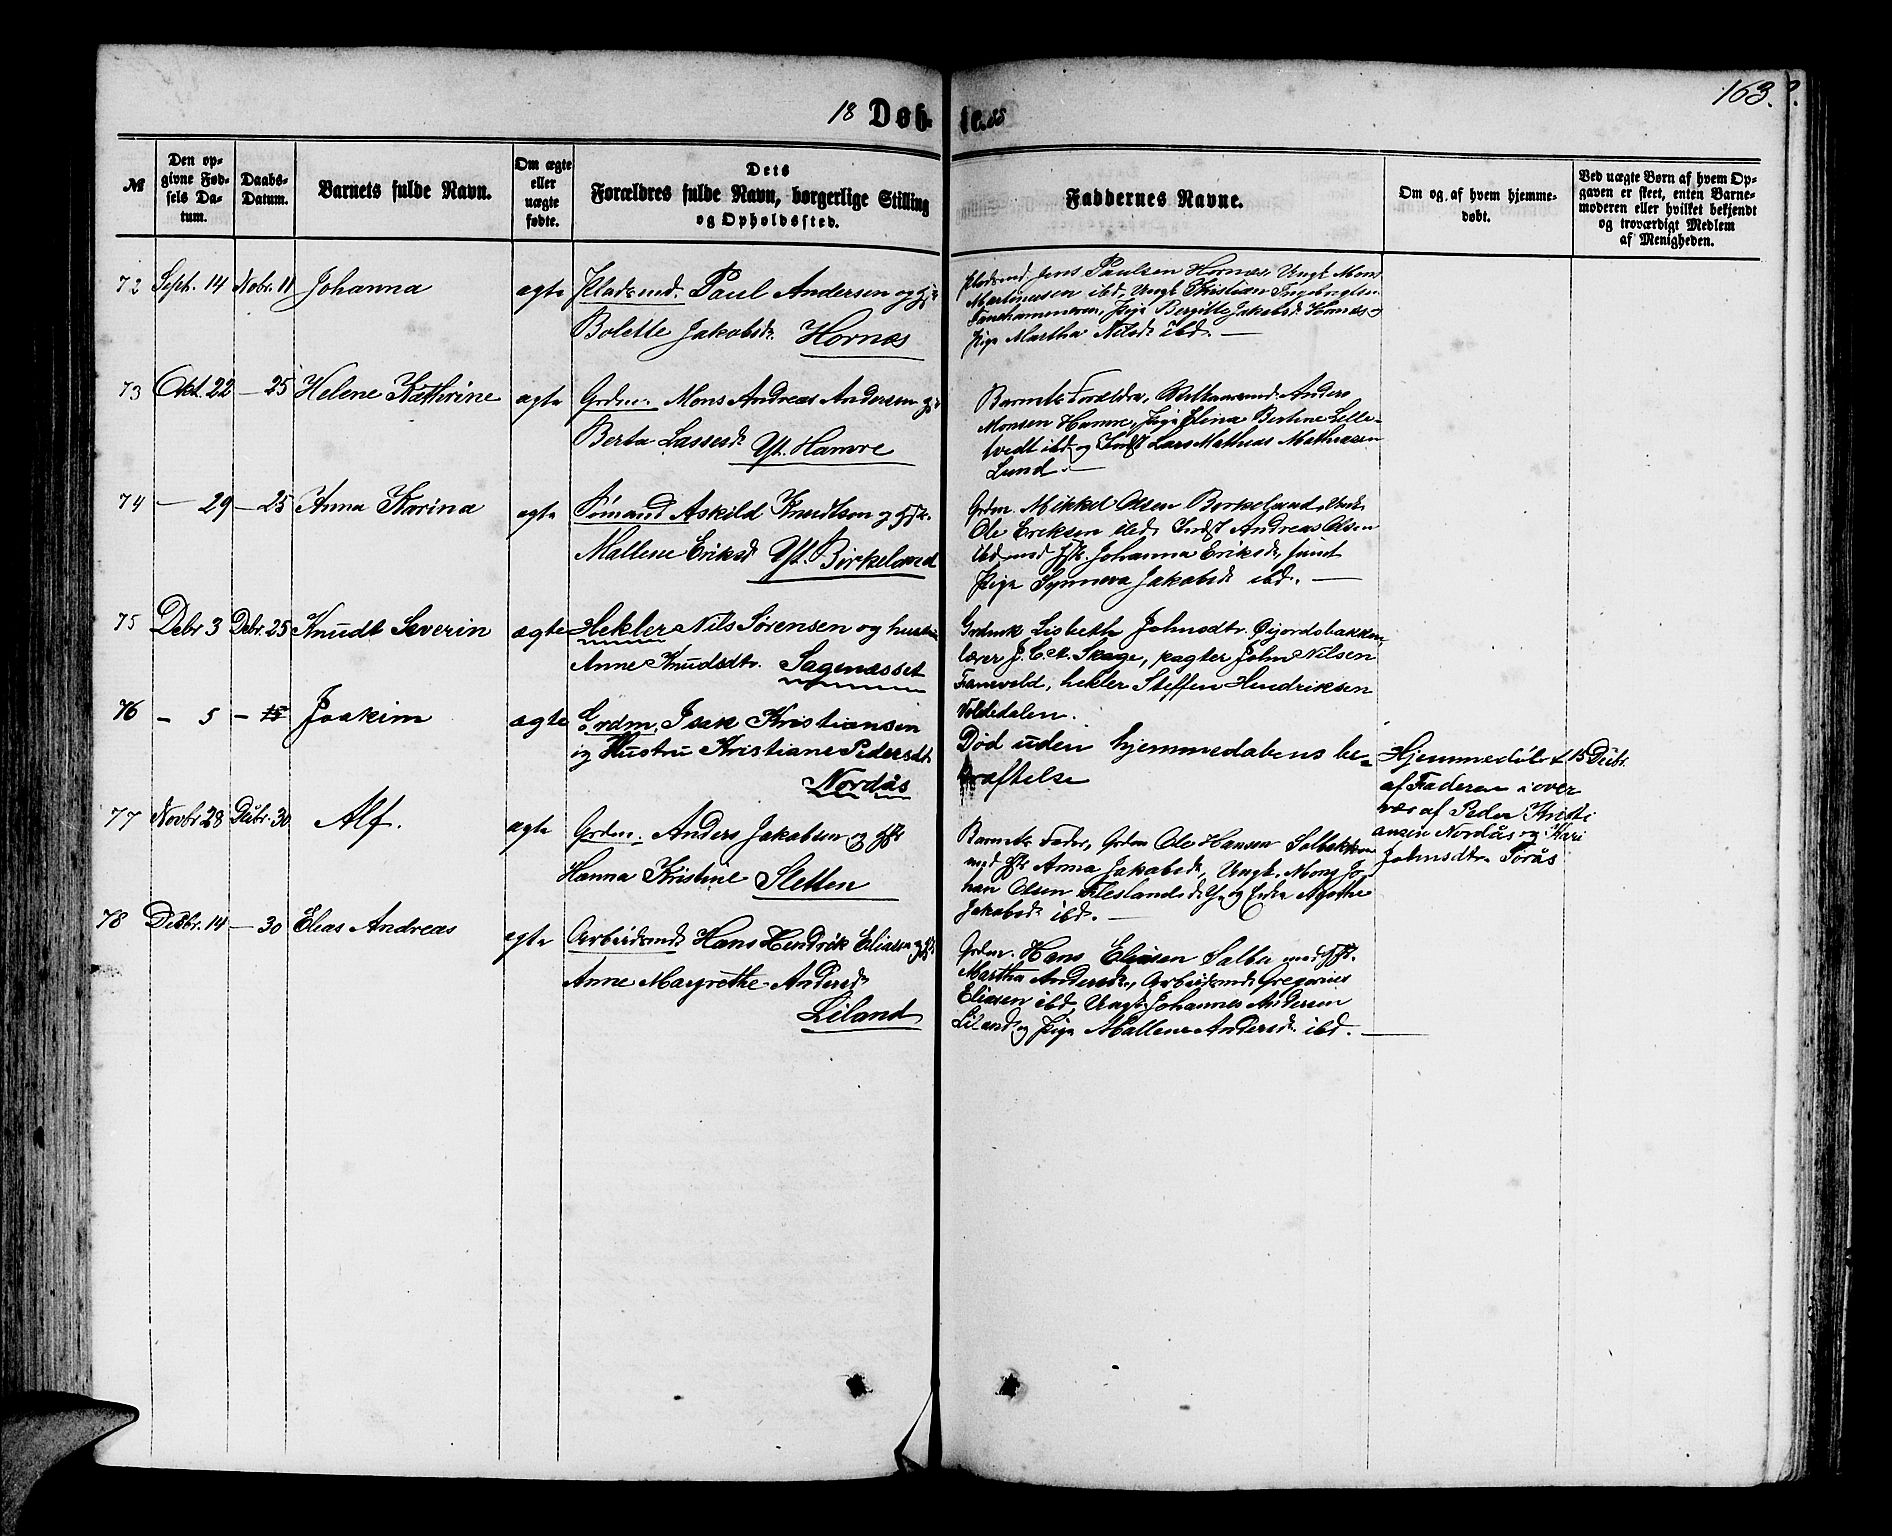 163.
18 Døb te. 85
№
Den opgivne Fødsels Datum.
Daabs-Datum.
Barnets fulde Navn.
Om ægte eller uægte fødte.
Dets Forældres fulde Navn, borgerlige Stilling og Opholdssted.
Faddernes Navne.
Om og af hvem hjemmedøbt.
Ved uægte Børn af hvem Opgaven er skeet, enten Barnemoderen eller hvilket bekjendt og troværdigt Medlem af Menigheden.
72 Septb. 14 Nobr. 11 Johanna ægte Pladsmd. Paul Andersen og
Bolette Jakobsd. Hornæs
Pladsmd. Jens Paulsen Hornæs, Ungk. Mons
Martinessen ibd., Ungk. Kristian Ingebrigtsen
Pige Bergitte Jakobsd. Hornæs og
Pige Martha Nilsd. ibd. —
73 Okt. 22 — 25 Helene Kathrine ægte Grdm. Mons Andreas Andersen
Berta Lassesd. Yt. Hamre
Barnets Forældre, Anders
Monsen Hamre, Pige Elina Bertine Lille-
tvedt ibd. og Lars Mathias Mathiasen
Lund. —
74 — 29 — 25 Anna Karina ægte Sømand Askild Knudtson og Hstr.
Mallene Eriksd. Yt. Birkeland
Grdm. Mikkel Olsen Borkeland,
Ole Eriksen ibd., Andreas Olsen
ibd. med Hstr. Johanna Eriksd., samt
Pige Synneva Jakobsd. ibd. —
75 Debr 3 Debr. 25 Knudt Severin ægte Hekler Nils Sørensen og hustru
Anne Knudsdtr. Sagenæsset
Lisbeth Johnsdtr. Øijordsbakken,
lærer J. C. A. Skage, pagter John Nilsen
Fanevold, hekler Steffen Hendriksen
Toldedalen.
76 — 5 — 15 Joakim ægte Grdm. Isak Kristiansen
og Hustru Kristiane Pedersdt.
Nordås
Død uden hjemmedabens be-
kræftelse
Hjemmedøbt 15 Debr.
af Faderen i over
vær af Peder Kristi
ansen Nordås og Kari
Johnsdtr. Torås
77 Novbr 28 Debr. 30 Alf. ægte Grdm. Anders Jakobsen og Hstr
Hanna Kristine Sletten
Barnets Fader, Grdm Ole Hansen Solbakken
med Hstr Anna Jakobsd., Ungk. Mons Jo-
han Olsen Agathe
Jakobsd. ibd. —
78 Debr. 14 — 30 Elias Andreas ægte Arbeidsmd. Hans Hendrik Eliassen
Anne Margrethe Andersd.
Liland
Grdm. Hans Eliasen Salbu med Hstr.
Martha Andersd., Arbeidsmd. Gregorius
Eliasen ibd., Ungk. Johannes Andersen
Liland og Pige Mallene Andersd. ibd. —